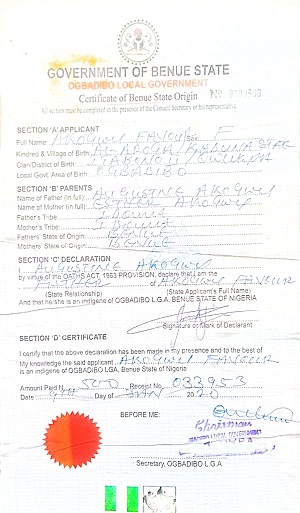 GOVERNMENT OF BENUE STATE
OGBADIBO LOCAL GOVERNMENT
Certificate of Benue State Origin
All section must be completed in the presence of the Council Secretary or his representative
SECTION 'A' APPLICANT
Full Name AKOGWU FAVOUR Sex F
Kindred & Village of Birth KADUNA STATE
Clan/District of Birth OWUKPA
Local Govt. Area of Birth OGBADIBO
SECTION 'B' PARENTS
Name of Father (in full) AUGUSTINE AKOGWU
Name of Mother (in full) ESTHER AKOGWU
Father's Tribe IDOMA
Mother's Tribe IDOMA
Fathers' State of Origin BENUE
Mothers' State of Origin BENUE
SECTION 'C' DECLARATION
I AUGUSTINE AKOGWU
by virtue of the OATHS ACT, 1963 PROVISION, declare that I am the
FATHER of AKOGWU FAVOUR
(State Relationship) (State Applicant's Full Name)
And that he/she is an indigene of OGBADIBO L.G.A, BENUE STATE OF NIGERIA
Signature or Mark of Declarant
SECTION 'D' CERTIFICATE
I certify that the above declaration has been made in my presence and to the best of
My knowledge the said applicant AKOGWU FAVOUR
is an indigene of OGBADIBO LGA, Benue State of Nigeria
Amount Paid N 500 Receipt No 033953
Date 9TH Day of JAN 2020
BEFORE ME:
Chairman
Secretary, OGBADIBO L.G.A